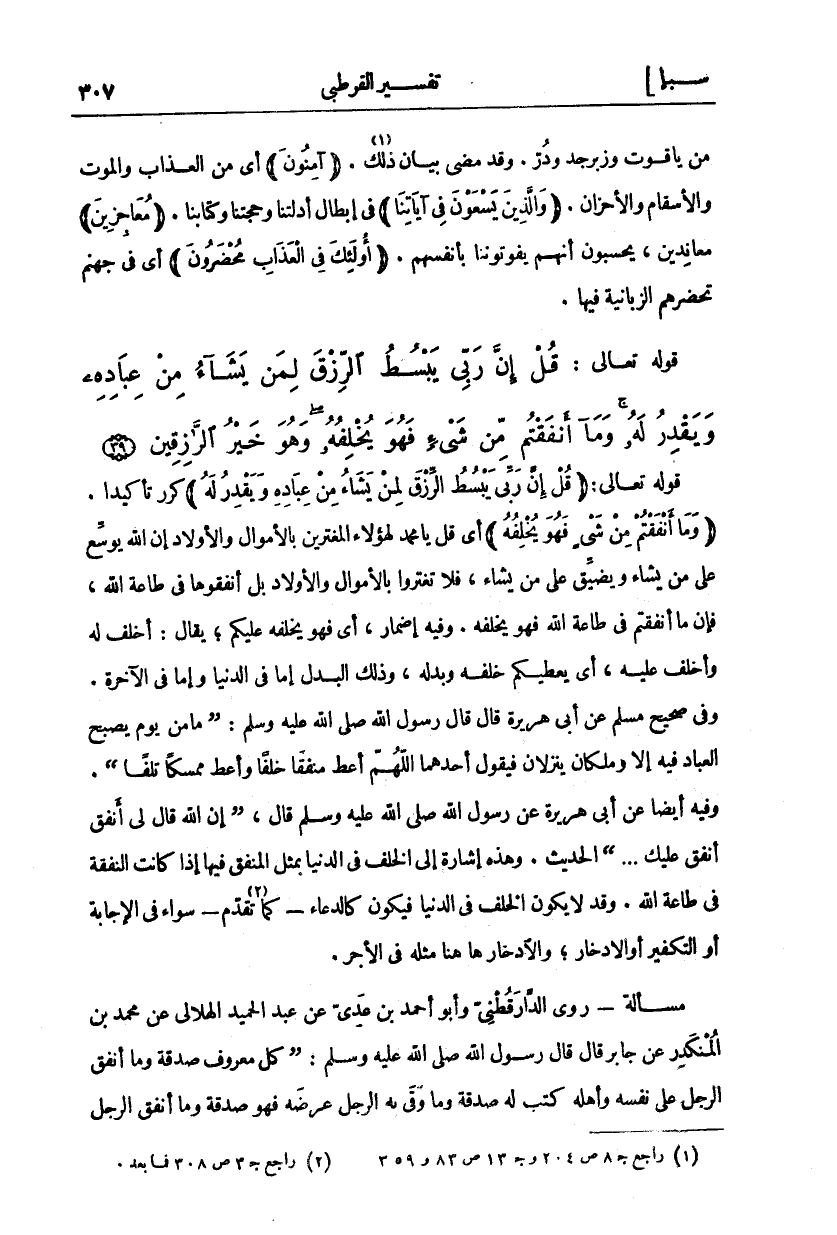 سبإ] تفسير القرطبى ٣٠٧
من ياقوت وزبرجد ودُرّ . وقد مضى بيان ذلك (١) . ﴿ آمِنُونَ ﴾ أى من العذاب والموت
والأسقام والأحزان . ﴿ وَالَّذِينَ يَسْعَوْنَ فِى آيَاتِنَا ﴾ فى إبطال أدلتنا وحجتنا وكتابنا . ﴿ مُعَاجِزِينَ ﴾
معاندين ، يحسبون أنهم يفوتوننا بأنفسهم . ﴿ أُولَئِكَ فِى الْعَذَابِ مُحْضَرُونَ ﴾ أى فى جهنم
تحضرهم الزبانية فيها .
قوله تعالى : قُلْ إِنَّ رَبِّى يَبْسُطُ ٱلرِّزْقَ لِمَن يَشَآءُ مِنْ عِبَادِهِۦ
وَيَقْدِرُ لَهُۥ ۚ وَمَآ أَنفَقْتُم مِّن شَىْءٍ فَهُوَ يُخْلِفُهُۥ ۖ وَهُوَ خَيْرُ ٱلرَّٰزِقِينَ ٣٩
قوله تعالى: ﴿ قُلْ إِنَّ رَبِّى يَبْسُطُ الرِّزْقَ لِمَنْ يَشَاءُ مِنْ عِبَادِهِ وَيَقْدِرُ لَهُ ﴾ كرر تأكيدا .
﴿ وَمَا أَنْفَقْتُمْ مِنْ شَىْءٍ فَهُوَ يُخْلِفُهُ ﴾ أى قل يا محمد لهؤلاء المغترين بالأموال والأولاد إن الله يوسّع
على من يشاء ويضيّق على من يشاء ، فلا تغتروا بالأموال والأولاد بل أنفقوها فى طاعة الله ،
فإن ما أنفقتم فى طاعة الله فهو يخلفه . وفيه إضمار ، أى فهو يخلفه عليكم ؛ يقال : أخلف له
وأخلف عليه ، أى يعطيكم خلفه وبدله ، وذلك البدل إما فى الدنيا وإما فى الآخرة .
وفى صحيح مسلم عن أبى هريرة قال قال رسول الله صلى الله عليه وسلم : ” مامن يوم يصبح
العباد فيه إلا وملكان ينزلان فيقول أحدهما اللَّهُمّ أعط منفقا خلفًا وأعط ممسكًا تلفًا “ .
وفيه أيضا عن أبى هريرة عن رسول الله صلى الله عليه وسلم قال ، ” إن الله قال لى أَنفق
أنفق عليك ... “ الحديث . وهذه إشارة إلى الخلف فى الدنيا بمثل المنفق فيها إذا كانت النفقة
فى طاعة الله . وقد لا يكون الخلف فى الدنيا فيكون كالدعاء – كما تقدّم (٢) – سواء فى الإجابة
أو التكفير أو الادخار ؛ والآدخار ها هنا مثله فى الأجر .
مسألة – روى الدَّارَقُطْنِىّ وأبو أحمد بن عَدِىّ عن عبد الحميد الهلالى عن محمد بن
المُنْكَدِر عن جابر قال قال رسول الله صلى الله عليه وسلم : ” كل معروف صدقة وما أنفق
الرجل على نفسه وأهله كتب له صدقة وما وَقَى به الرجل عرضَه فهو صدقة وما أنفق الرجل
(١) راجع جـ ٨ ص ٢٠٤ وجـ ١٣ ص ٨٣ و ٣٥٩ (٢) راجع جـ ٣ ص ٣٠٨ فما بعد .